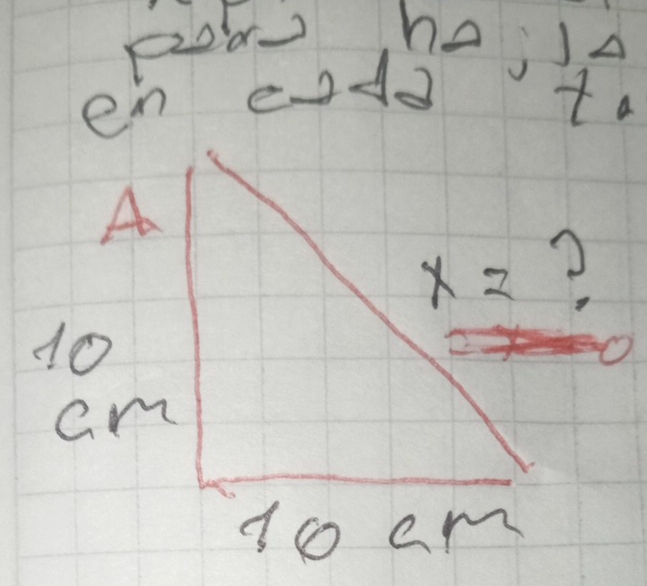 para ha
en cada t.
A
x = ?
10
cm
10 cm